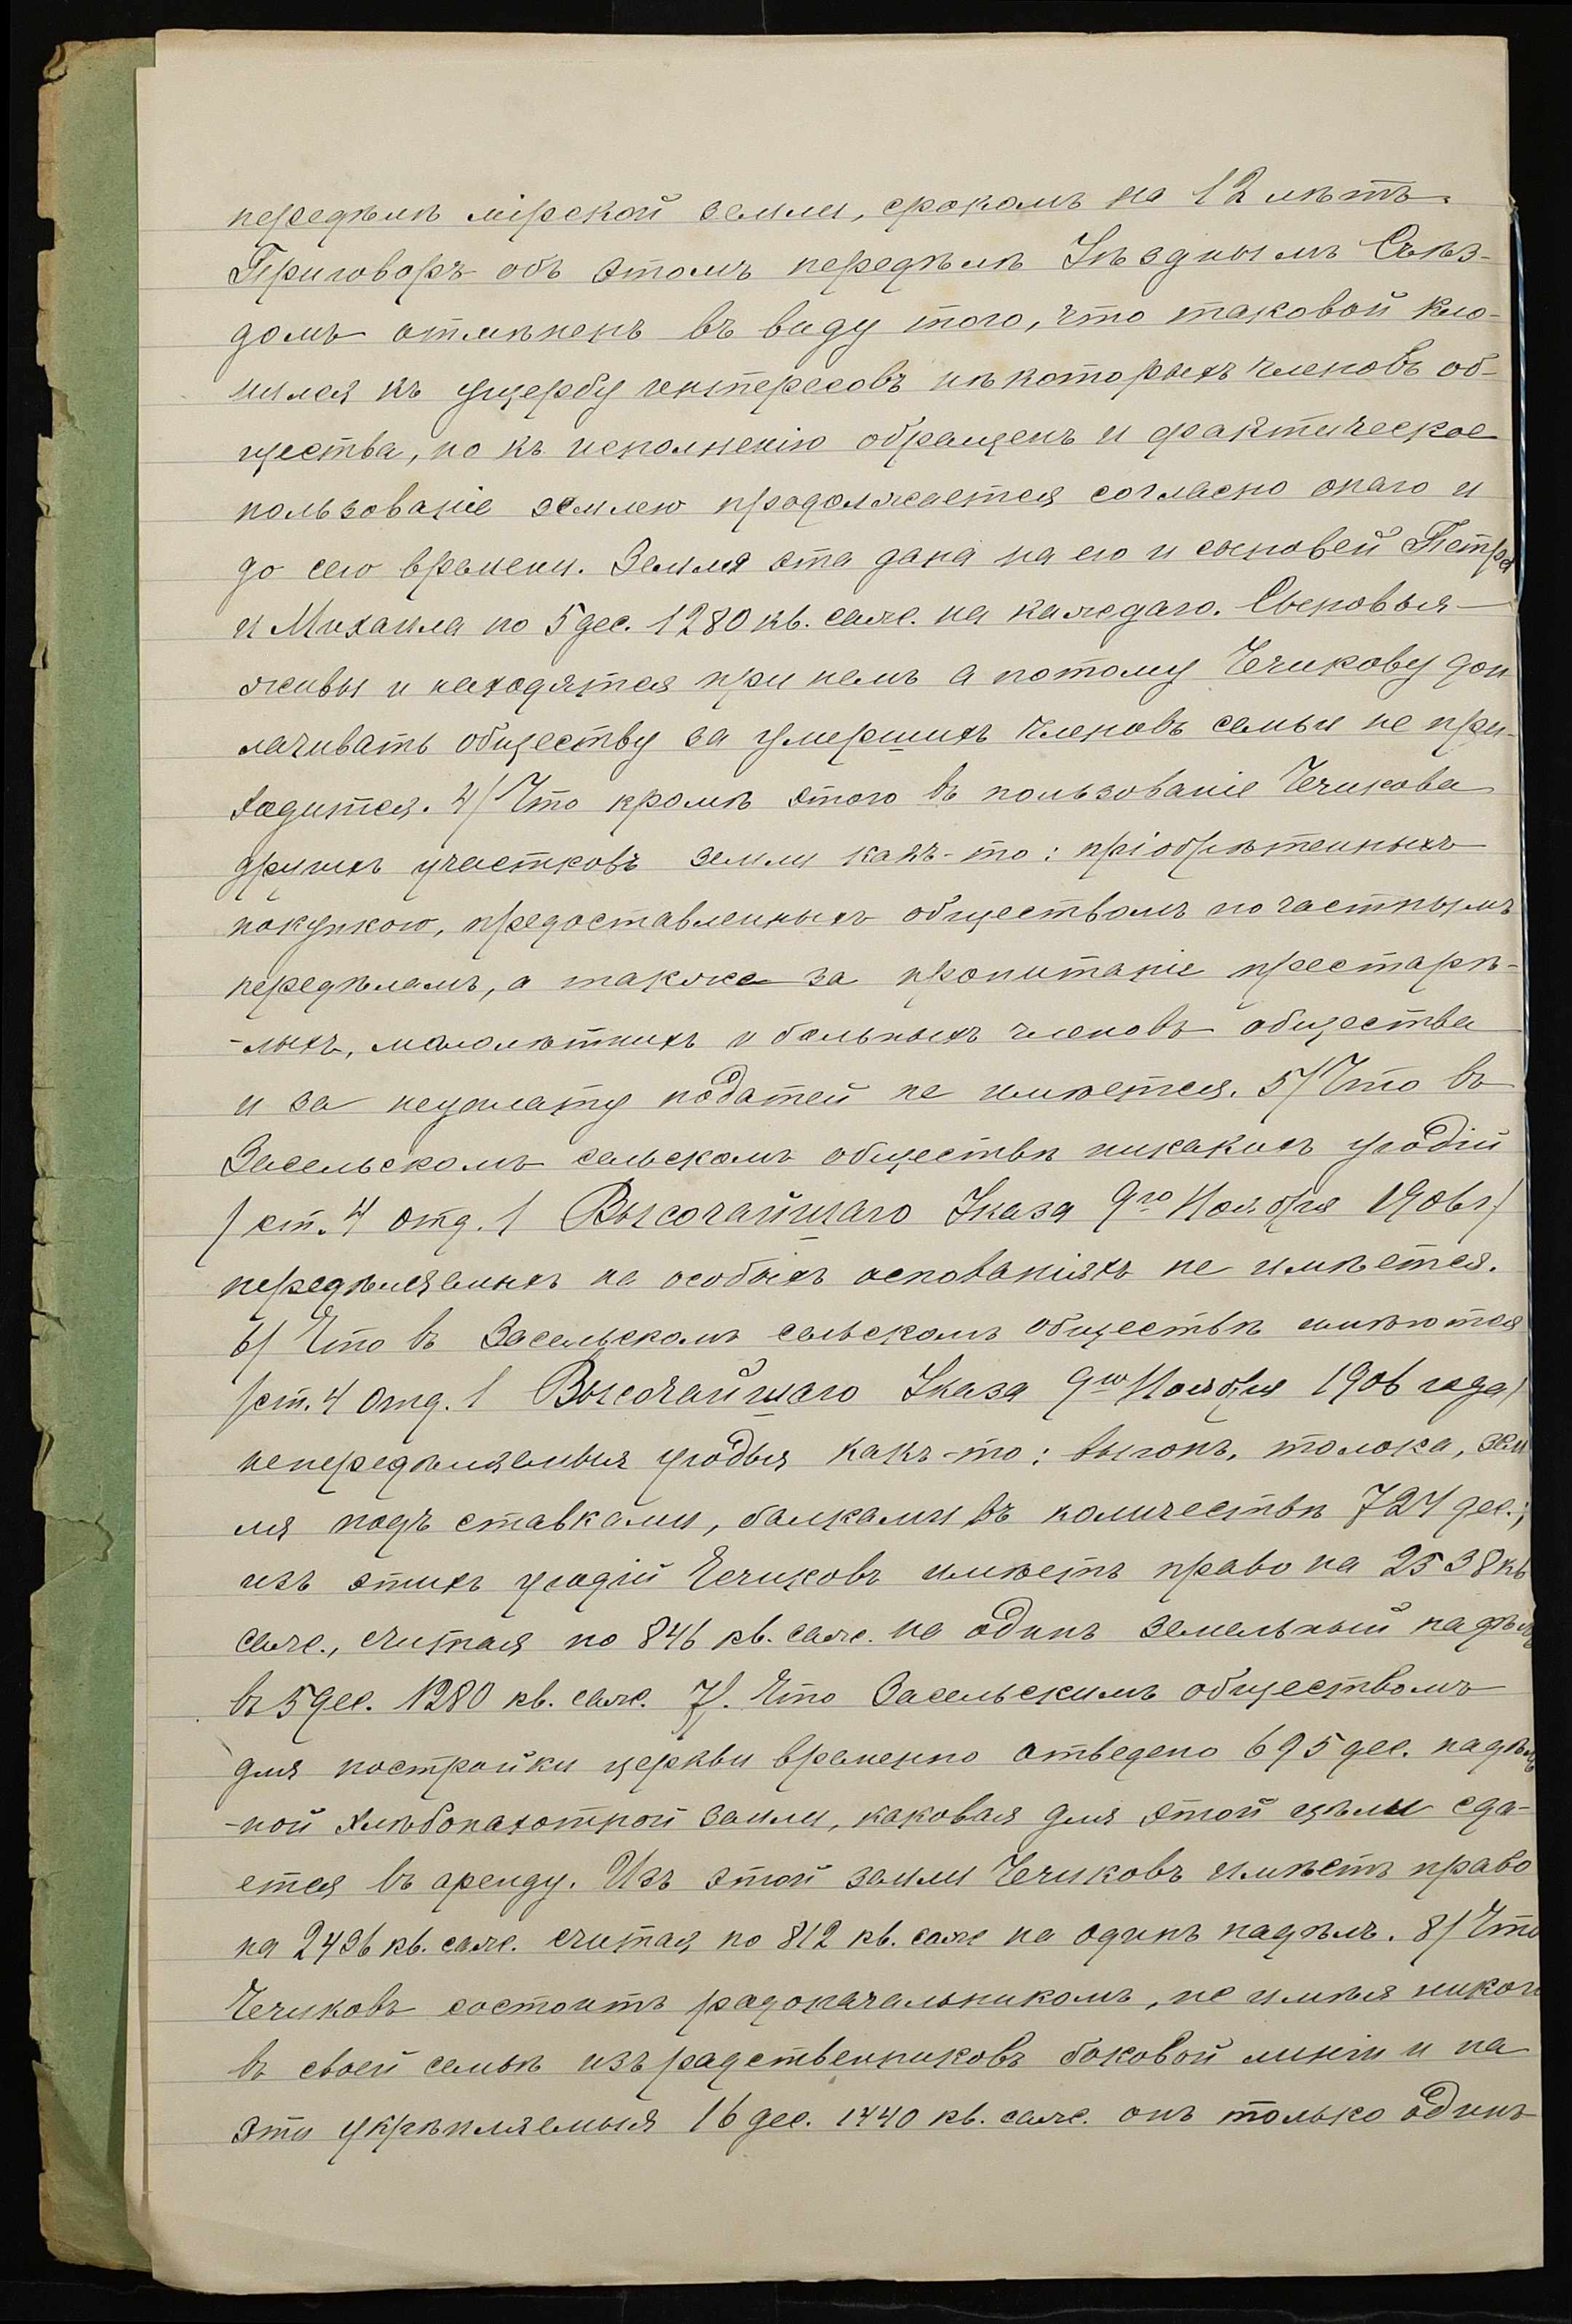 передѣлѣ мірской земли, срокомъ на 12 лѣтъ.
Приговоръ объ этомъ передѣлѣ Уѣзднымъ Съѣз-
домъ отмѣненъ въ виду того, что таковой кло-
нился къ ущербу интересовъ нѣкоторыхъ членовъ об-
щества, но къ исполненію обращенъ и фактическое
пользованіе землею продолжается согласно онаго и
до сего времени. Земля эта дана на его и сыновей Петра
и Михаила по 5 дес. 1280 кв. саж. на каждаго. Сыновья
живы и находятся при немъ а потому Чечикову доп
лачивать обществу за умершихъ членовъ семьи не при-
ходится. 4/ Что кромѣ этого въ пользованіе Чечикова
другихъ участковъ земли какъ-то: пріобрѣтенныхъ
покупкою, предоставленныхъ обществомъ по частнымъ
передѣламъ, а также за пропитаніе престарѣ-
-лыхъ, малолѣтнихъ и больныхъ членовъ общества
и за неуплату податей не имѣется. 5/ Что въ
Засельскомъ сельскомъ обществѣ никакихъ угодій
/ст. 4 отд. 1 Высочайшаго Указа 9го Ноября 1906 г/
передѣляемыхъ на особыхъ основаніяхъ не имѣется.
6/ Что въ Засельскомъ сельскомъ обществѣ имѣются
/ст. 4 отд. 1 Высочайшаго Указа 9го Ноября 1906 года/
непередѣляемыя угодья какъ-то: выгонъ, толока, зем
ля подъ ставками, балками въ количествѣ 724 дес.;
изъ этихъ угодій Чечиковъ имѣетъ право на 2538 кв
саж., считая по 846 кв. саж. на одинъ земельный надѣлъ
въ 5 дес. 1280 кв. саж. 7/. Что Засельскимъ обществомъ
для постройки церкви временно отведено 695 дес. надѣль
-ной хлѣбопахотной земли, каковая для этой цѣли сда-
ется въ аренду. Изъ этой земли Чечиковъ имѣетъ право
на 2436 кв. саж. считая по 812 кв. саж на одинъ надѣлъ. 8/ Что
Чечиковъ состоитъ родоначальникомъ, не имѣя никого
въ своей семьѣ изъ родственниковъ боковой линіи и на
эти укрѣпляемыя 16 дес. 1440 кв. саж. онъ только одинъ